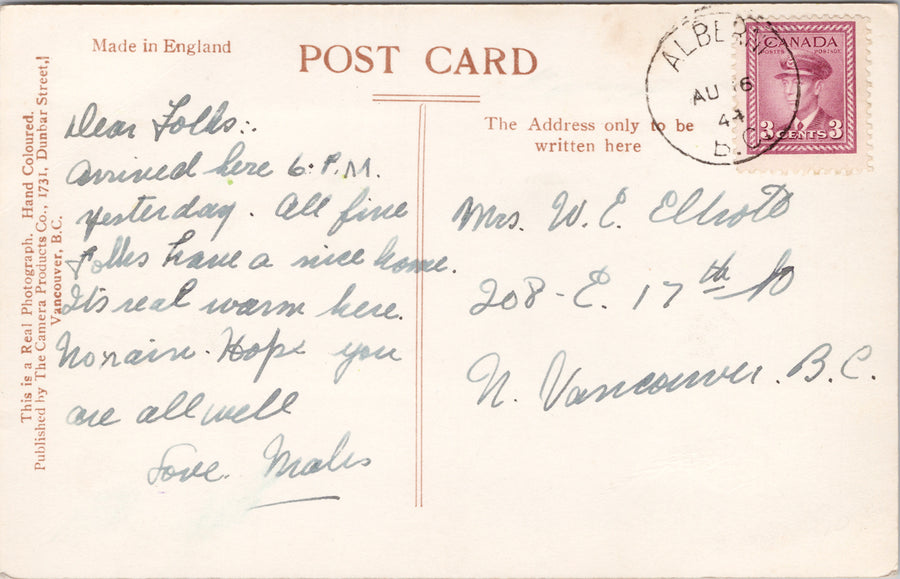 Made in England
POST CARD
The Address only to be
written here
This is a Real Photograph. Hand Coloured.
Published by The Camera Products Co., 1731, Dunbar Street,
Vancouver, B.C.
ALBERNI
AU 16
44
B.C.
CANADA
POSTES POSTAGE
3 CENTS 3
Dear Folks:.
Arrived here 6:P.M.
yesterday. All fine
Folks have a nice home.
Its real warm here.
No rain. Hope you
are all well
Love.
Mrs. W. E. Elliott
208-E. 17th St
N. Vancouver. B.C.